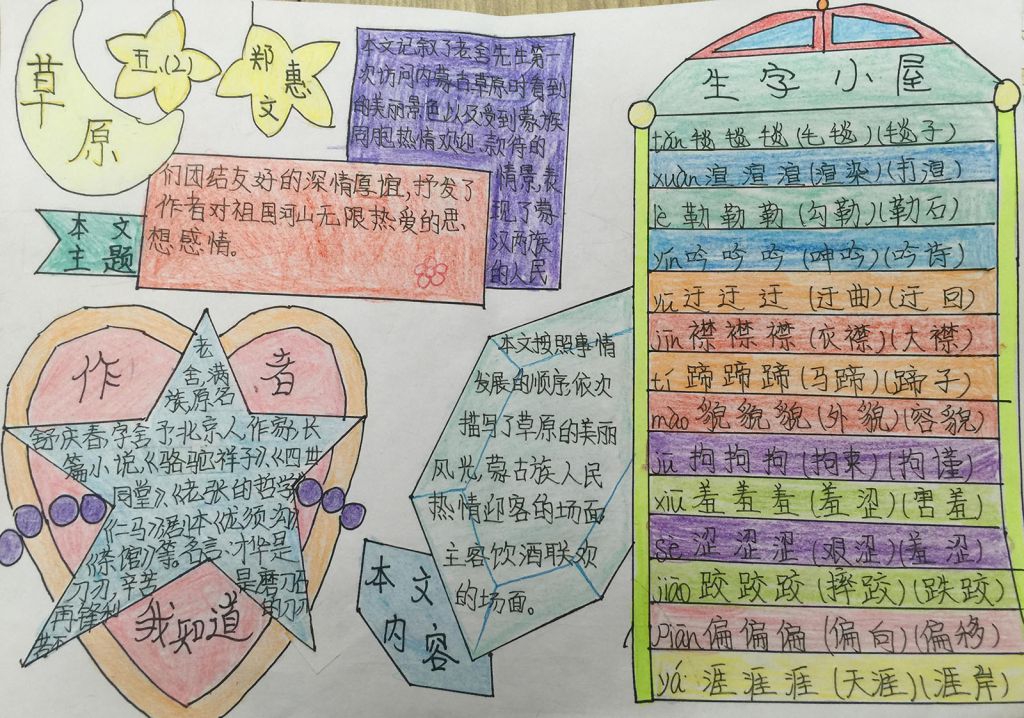 草
原
五、(2)
郑
惠
文
本文记叙了老舍先生第一
次访问内蒙古草原时看到
的美丽景色以及受到蒙族
同胞热情欢迎、款待的
情景,表
现了蒙
汉两族
的人民
们团结友好的深情厚谊,抒发了
作者对祖国河山无限热爱的思
想感情。
本文
主题
作者
老
舍,满
族,原名
舒庆春,字舍予,北京人,作家,长
篇小说,《骆驼祥子》、《四世
同堂》《老张的哲学》
《二马》剧本《龙须沟》
《茶馆》等。名言:才华是
刀刃,辛苦
是磨刀石
再锋利
的刀刃
我知道
本文
内容
本文按照事情
发展的顺序,依次
描写了草原的美丽
风光,蒙古族人民
热情迎客的场面
主客饮酒联欢
的场面。
生字小屋
tǎn 毯 毯 毯 (毛毯)(毯子)
xuàn 渲 渲 渲 (渲染)(打渲)
lè 勒 勒 勒 (勾勒)(勒石)
yín 吟 吟 吟 (呻吟)(吟诗)
yū 迂 迂 迂 (迂曲)(迂回)
jīn 襟 襟 襟 (衣襟)(大襟)
tí 蹄 蹄 蹄 (马蹄)(蹄子)
mào 貌 貌 貌 (外貌)(容貌)
jū 拘 拘 拘 (拘束)(拘谨)
xiū 羞 羞 羞 (羞涩)(害羞)
sè 涩 涩 涩 (艰涩)(羞涩)
jiāo 跤 跤 跤 (摔跤)(跌跤)
piān 偏 偏 偏 (偏向)(偏移)
yá 涯 涯 涯 (天涯)(涯岸)